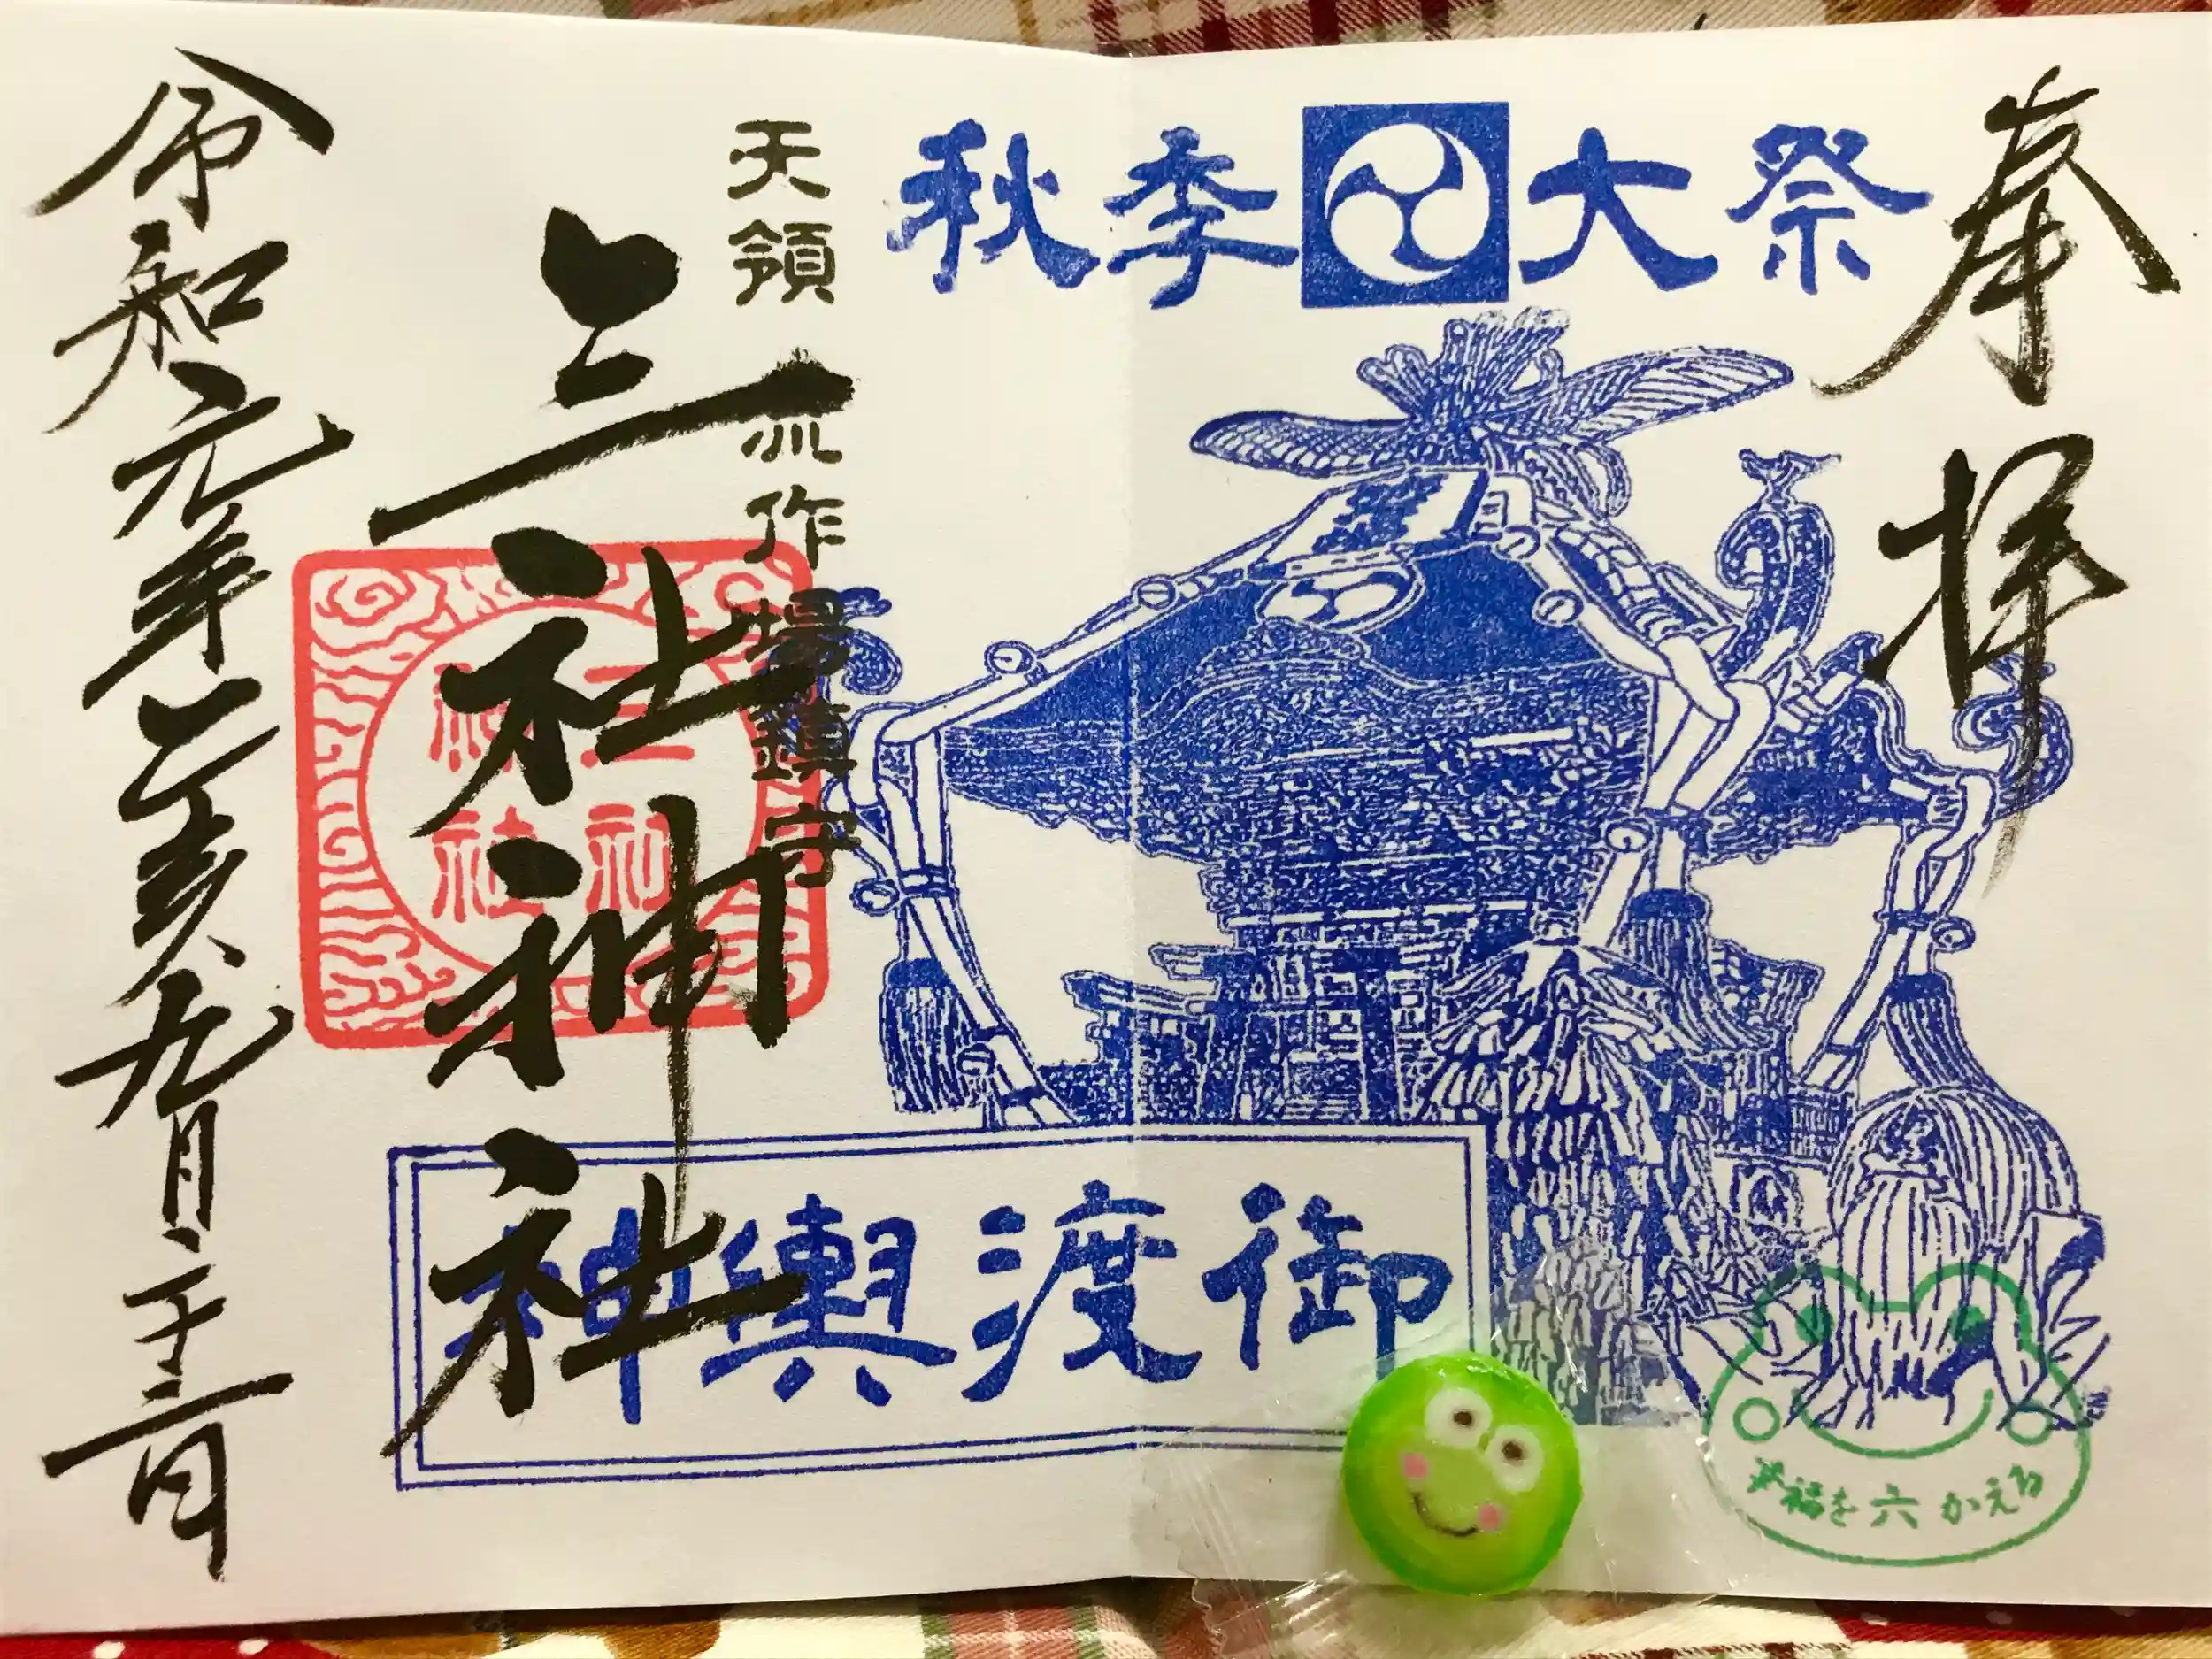 奉拝
秋季大祭
天領 流作場鎮守
三社神社
三社
神社
神輿渡御
幸福を六かえる
令和元年己亥九月